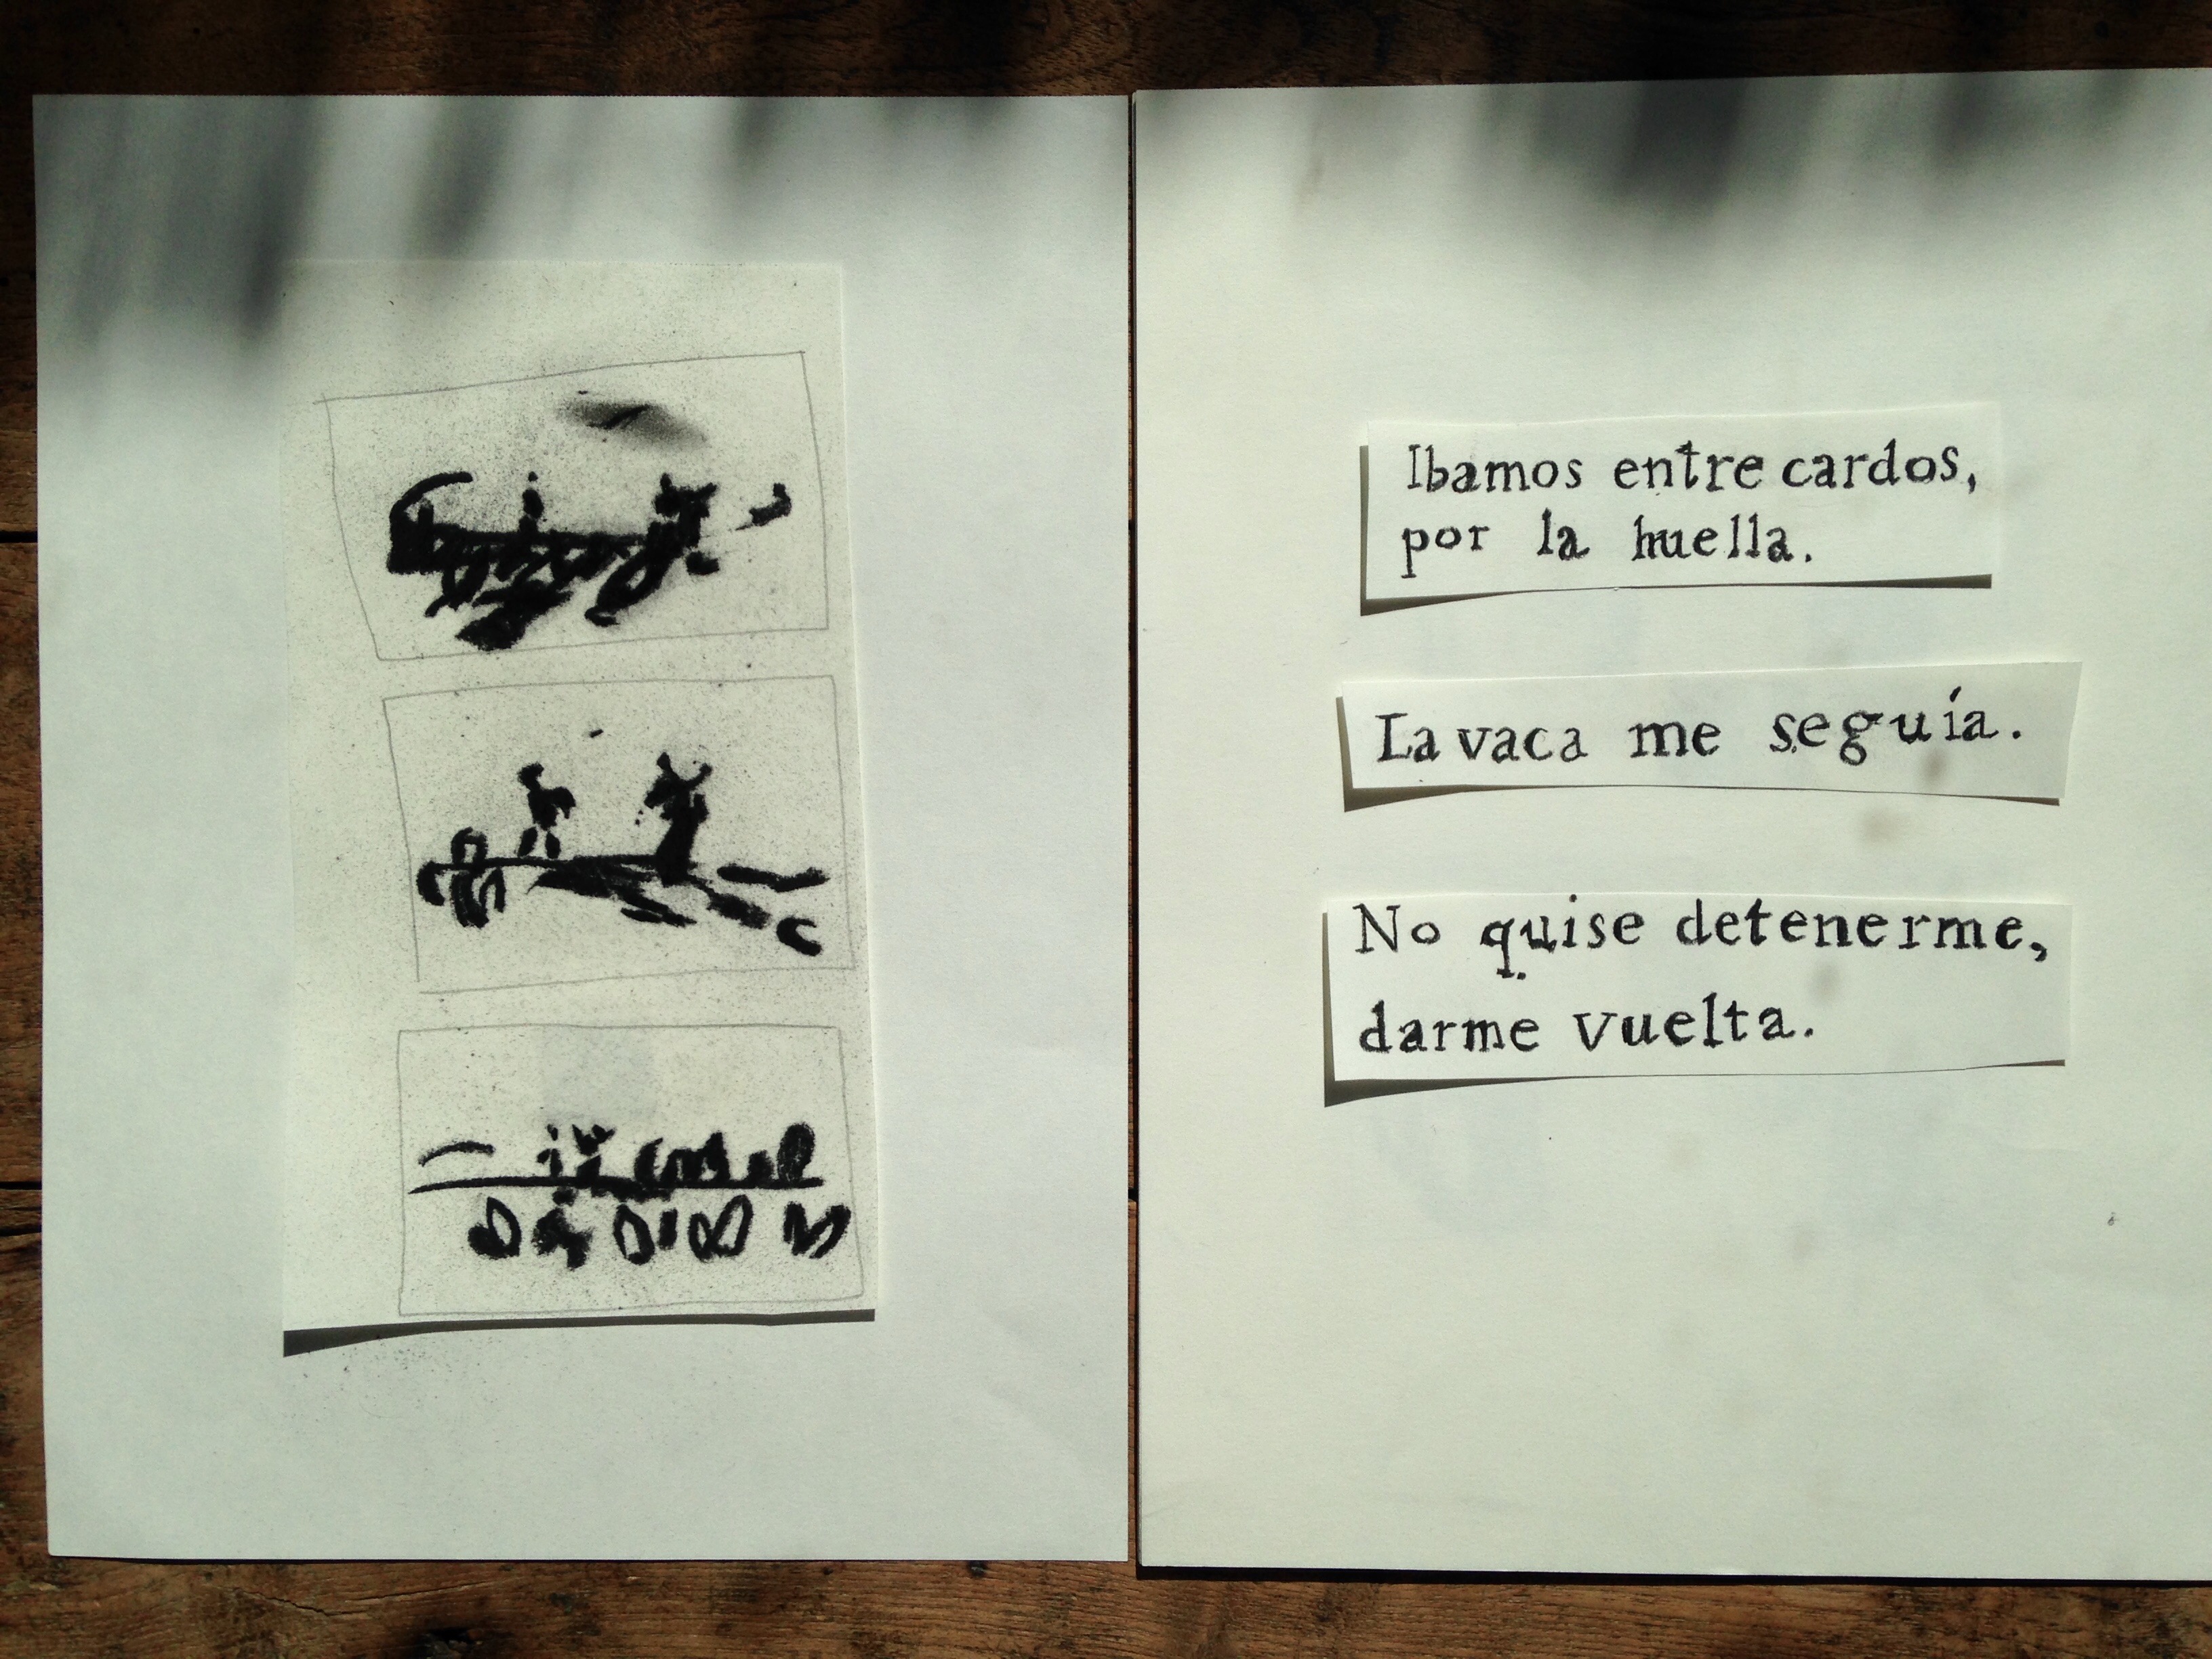 Ibamos entre cardos,
por la huella.
La vaca me seguía.
No quise detenerme,
darme vuelta.